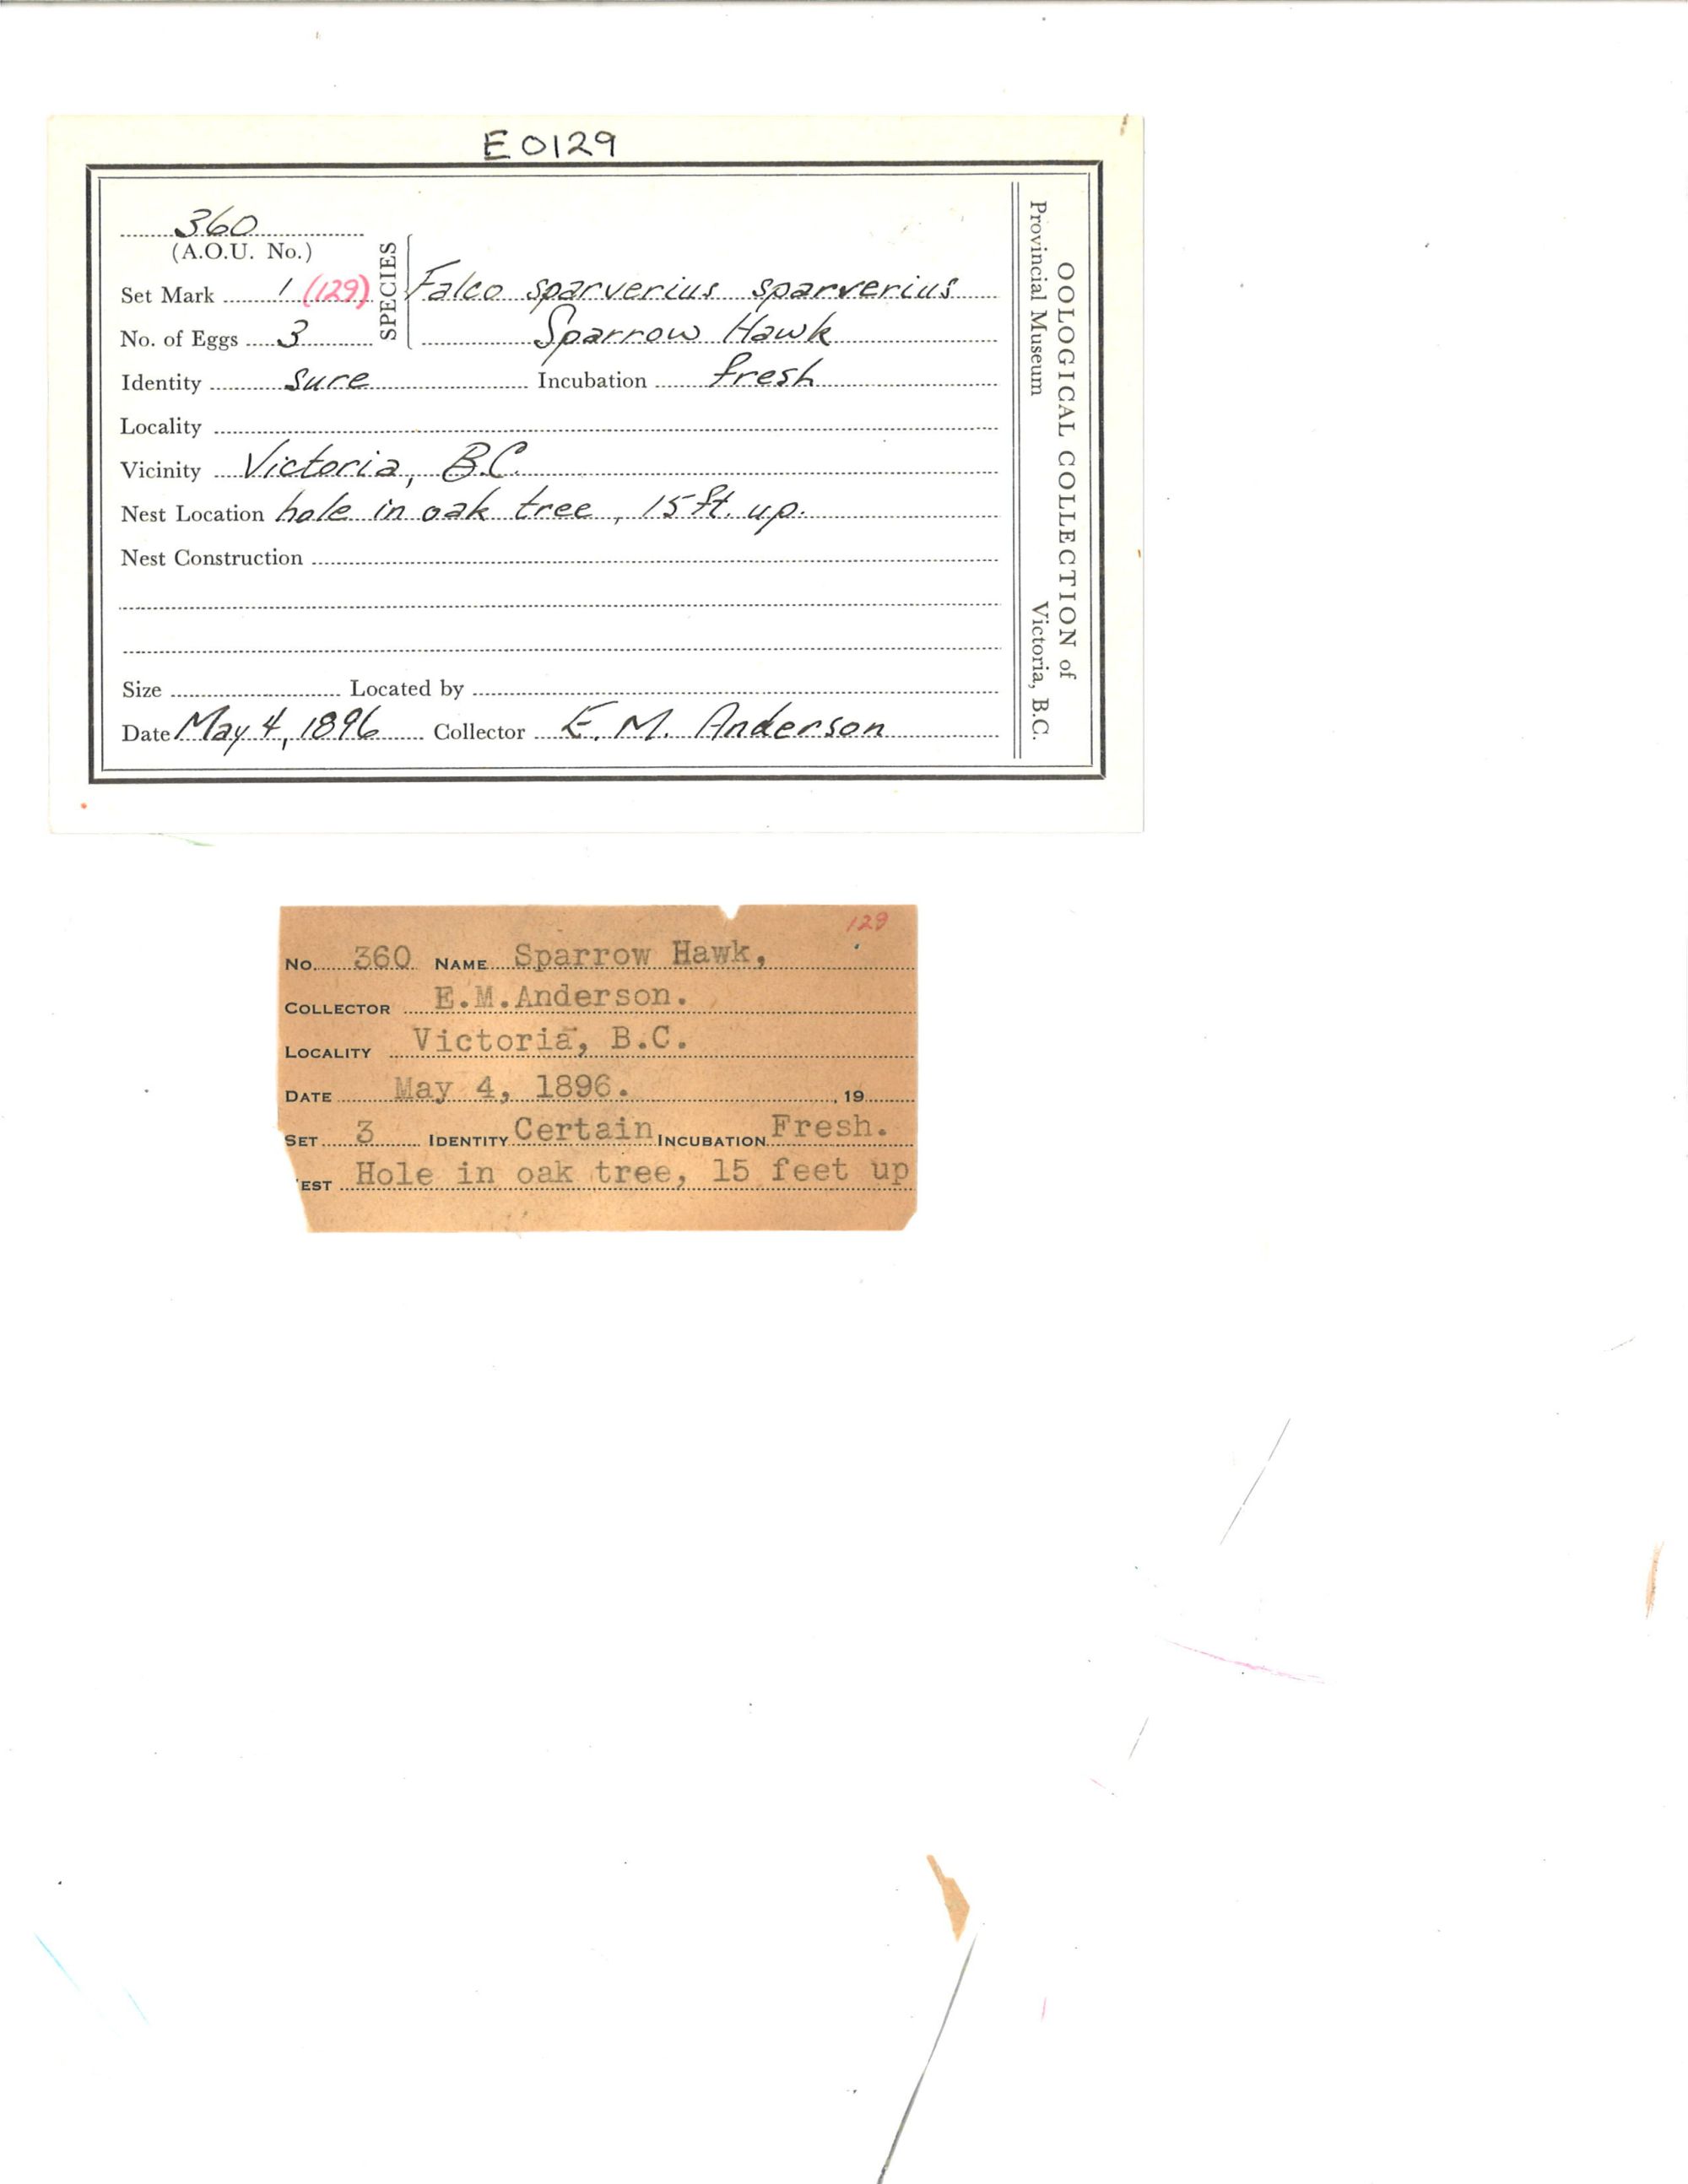 E0129
360
(A.O.U. No.)
SPECIES
Set Mark 1 (129) Falco sparverius sparverius
No. of Eggs 3 Sparrow Hawk
Identity sure Incubation fresh
Locality
Vicinity Victoria, B.C.
Nest Location hole in oak tree, 15 ft. up.
Nest Construction
Size Located by
Date May 4, 1896 Collector E. M. Anderson
OOLOGICAL COLLECTION of
Provincial Museum Victoria, B.C.
129
No. 360 NAME Sparrow Hawk,
COLLECTOR E.M.Anderson.
LOCALITY Victoria, B.C.
DATE May 4, 1896. , 19
SET 3 IDENTITY Certain INCUBATION Fresh.
EST Hole in oak tree, 15 feet up